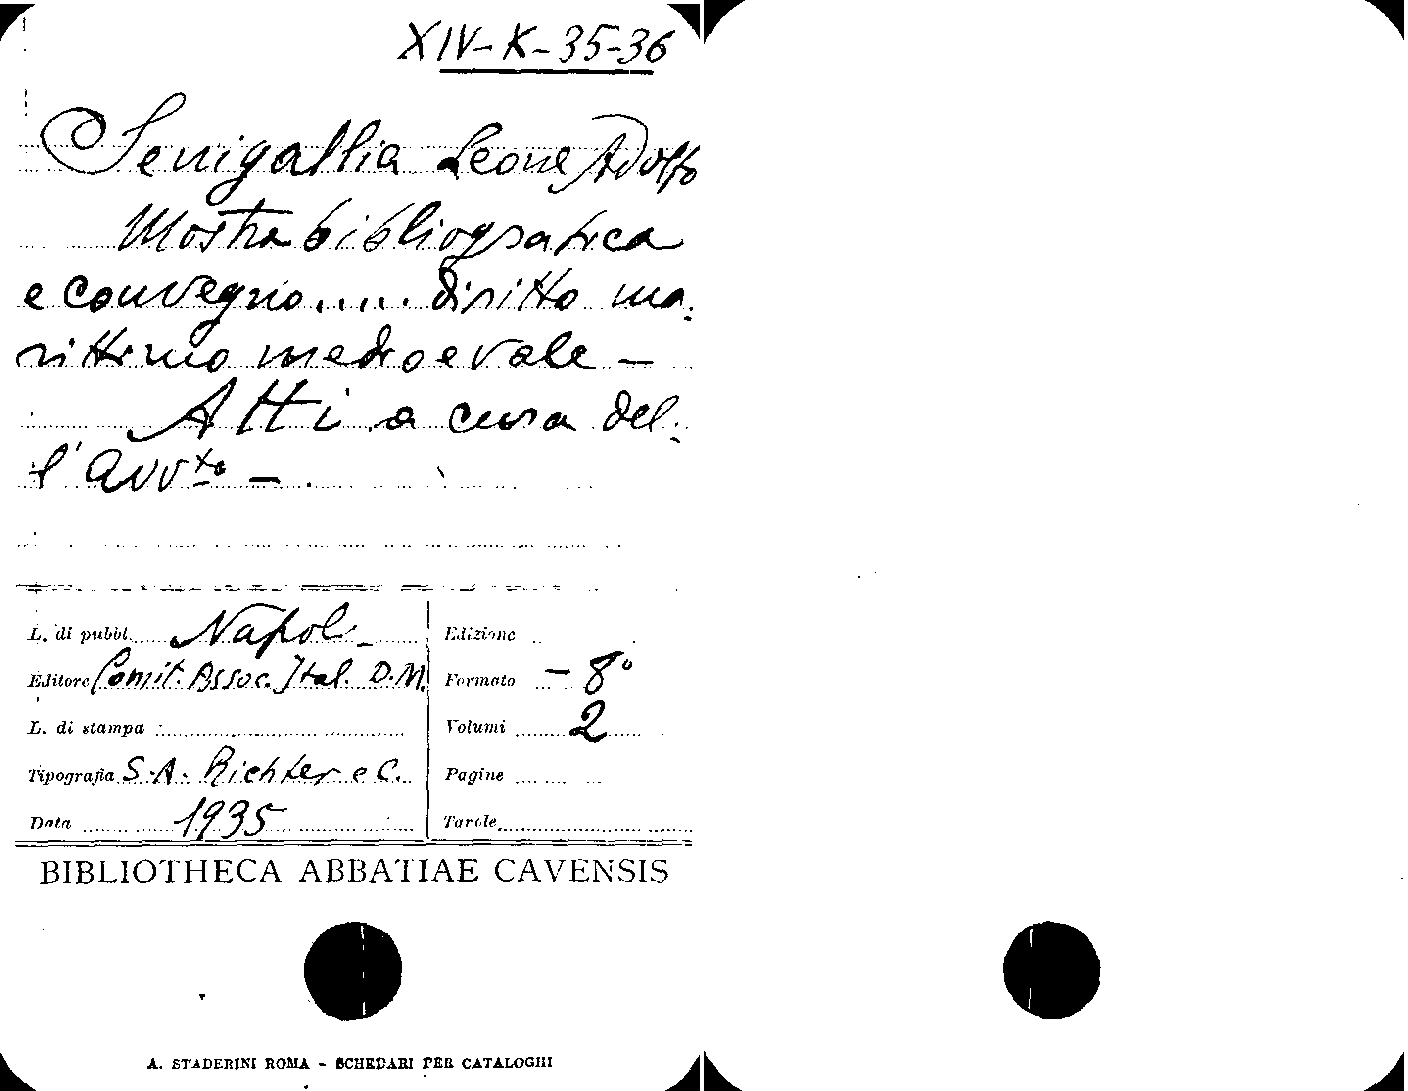 XIV-K-35-36
Senigallia Leone Adolfo
Mostra bibliografica
e convegno..... diritto ma-
rittimo medioevale -
Atti a cura del-
l'avv.to -
L. di pubbl. Napoli
Edizione
Editore Comit. Assoc. Ital. D.M.
Formato - 8°
L. di stampa
Volumi 2
Tipografia S.A. Richter e C.
Pagine
Data 1935
Tavole
BIBLIOTHECA ABBATIAE CAVENSIS
A. STADERINI ROMA - SCHEDARI PER CATALOGHI